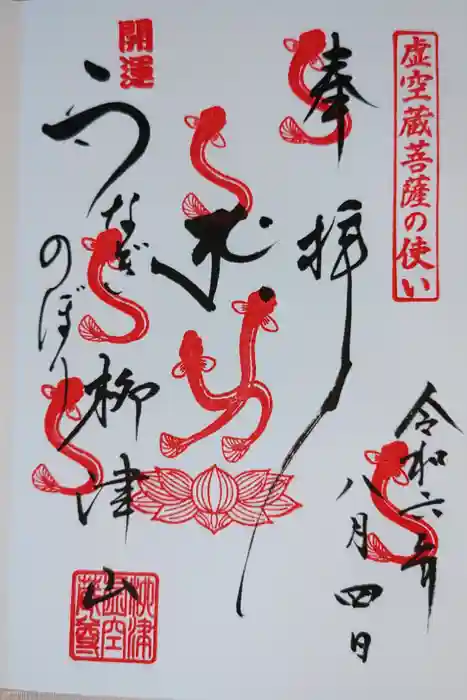 虚空蔵菩薩の使い
奉拝
令和六年
八月四日
開運
うなぎのぼり
柳津山
柳津
虚空
蔵尊